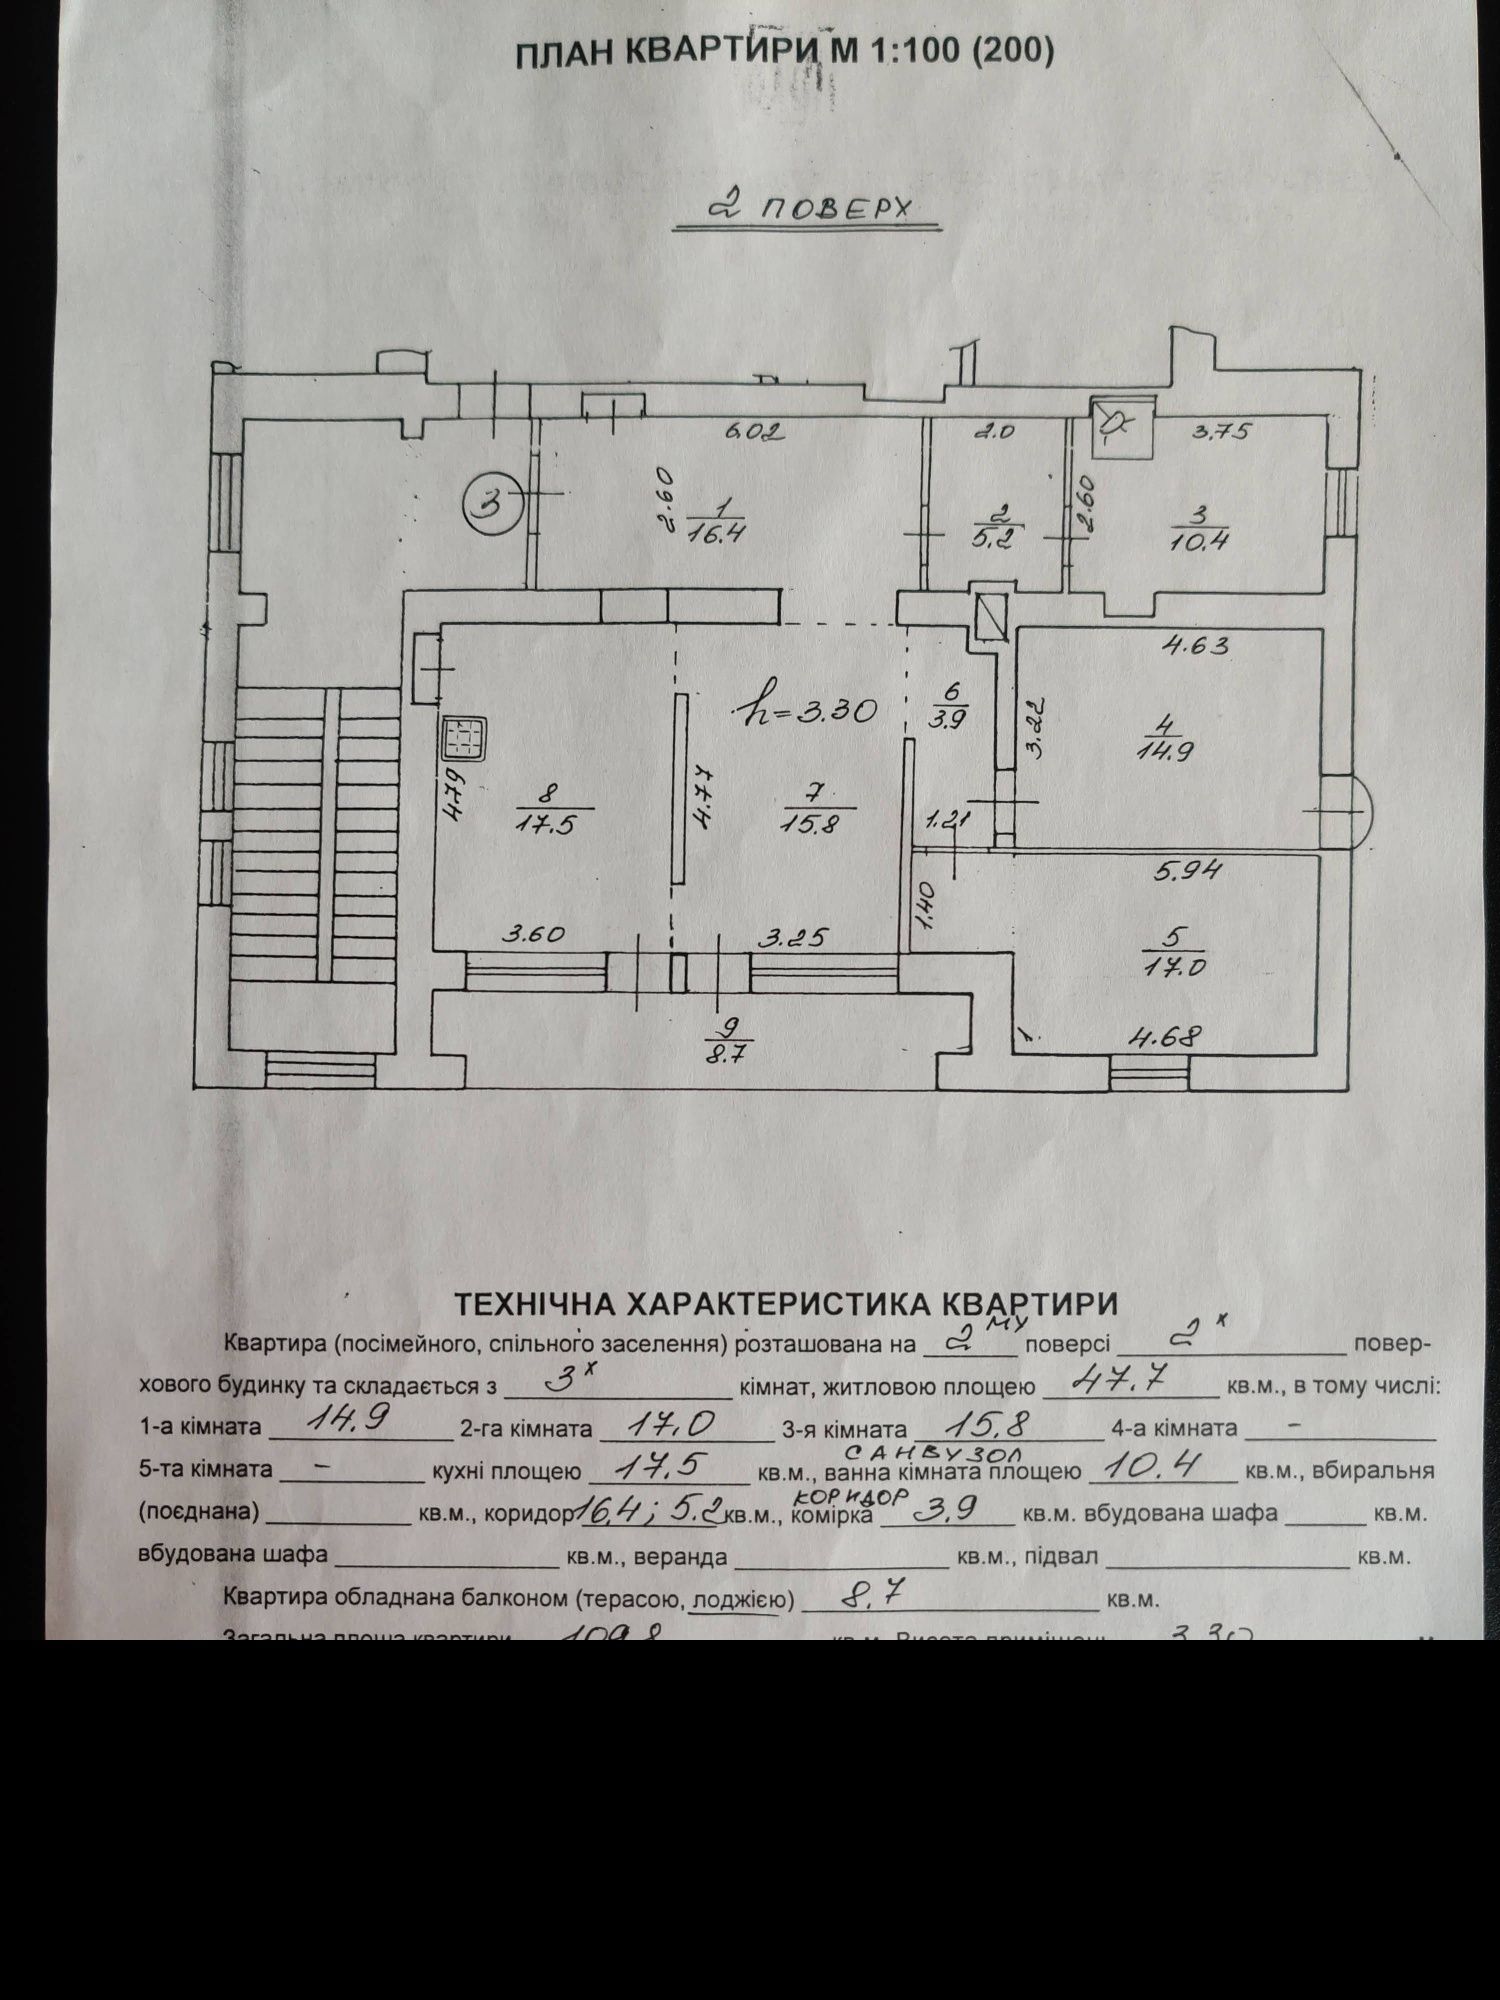 ПЛАН КВАРТИРИ М 1:100 (200)
2 ПОВЕРХ
6.02
2.0
3.75
2.60
2.60
3
1
16.4
2
5.2
3
10.4
4.63
h=3.30
6
3.9
3.22
4
14.9
4.79
8
17.5
4.77
7
15.8
1.21
5.94
1.40
3.60
3.25
5
17.0
9
8.7
4.68
ТЕХНІЧНА ХАРАКТЕРИСТИКА КВАРТИРИ
Квартира (посімейного, спільного заселення) розташована на 2му поверсі 2х повер-
хового будинку та складається з 3х кімнат, житловою площею 47.7 кв.м., в тому числі:
1-а кімната 14.9 2-га кімната 17.0 3-я кімната 15.8 4-а кімната –
САНВУЗОЛ
5-та кімната – кухні площею 17.5 кв.м., ванна кімната площею 10.4 кв.м., вбиральня
КОРИДОР
(поєднана) кв.м., коридор 16.4; 5.2 кв.м., комірка 3.9 кв.м. вбудована шафа кв.м.
вбудована шафа кв.м., веранда кв.м., підвал кв.м.
Квартира обладнана балконом (терасою, лоджією) 8.7 кв.м.
Загальна площа квартири 109.8 кв.м. Висота приміщень 3.30 м